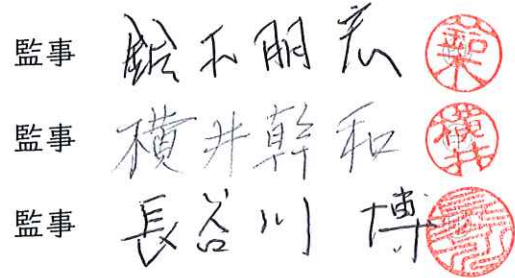 監事 鈴木朋宏
監事 横井幹和
監事 長谷川 博